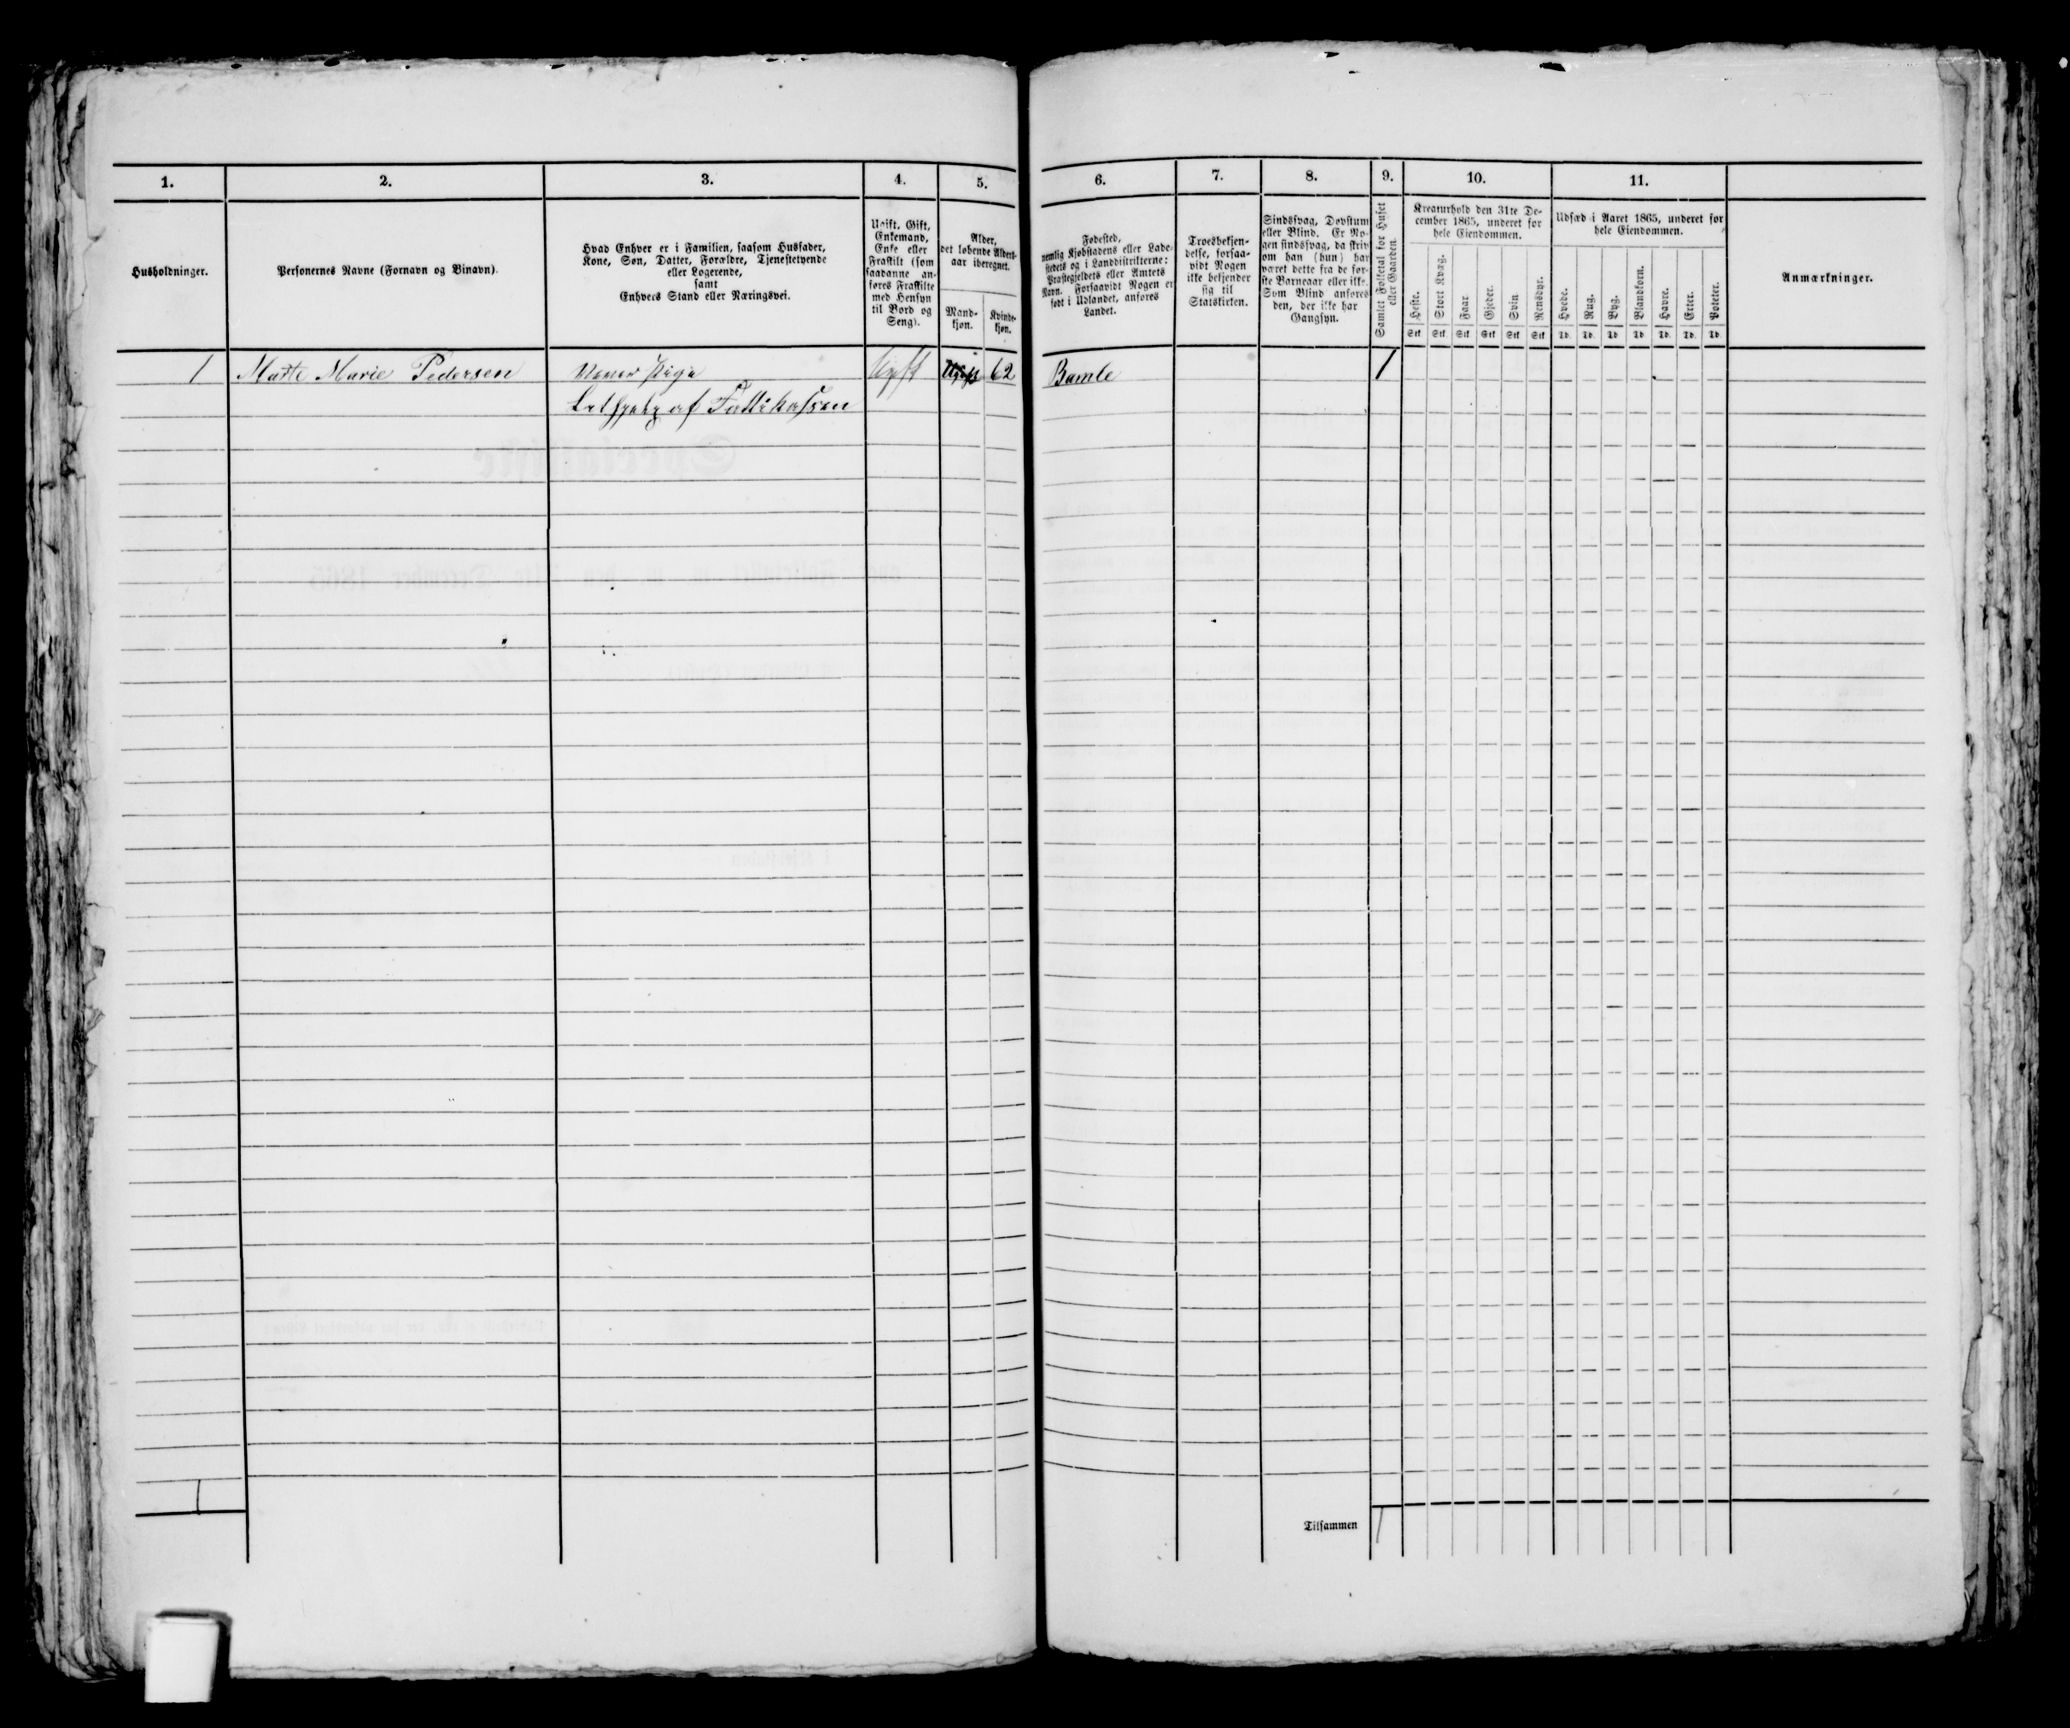 1.
2.
3.
4.
5.
6.
7.
8.
9.
10.
11.
Husholdninger.
Personernes Navne (Fornavn og Binavn).
Hvad Enhver er i Familien, saasom Husfader,
Kone, Søn, Datter, Forældre, Tjenestetyende
eller Logerende,
samt
Enhvers Stand eller Næringsvei.
Ugift, Gift,
Enkemand,
Enke eller
Fraskilt (som
saadanne an-
føres Fraskilte
med Hensyn
til Bord og
Seng).
Alder,
det løbende Alders-
aar iberegnet.
Mand-
kjøn.
Kvinde-
kjøn.
Fødested,
nemlig Kjøbstadens eller Lade-
stedets og i Landdistrikterne:
Præstegjeldets eller Amtets
Navn. Forsaavidt Nogen er
født i Udlandet, anføres
Landet.
Troesbekjen-
delse, forsaa-
vidt Nogen
ikke bekjender
sig til
Statskirken.
Sindssvag, Døvstum
eller Blind. Er No-
gen sindssvag, da skriv
om han (hun) har
været dette fra de før-
ste Barneaar eller ikke.
Som Blind anføres
den, der ikke har
Gangsyn.
Samlet Folketal for Huset
eller Gaarden.
Kreaturhold den 31te De-
cember 1865, underet for
hele Eiendommen.
Heste.
Stort Kvæg.
Faar
Gjeder.
Svin
Rensdyr.
Stk Stk Stk Stk Stk Stk
Udsæd i Aaret 1865, underet for
hele Eiendommen.
Hvede.
Rug.
Byg.
Blandkorn.
Havre.
Erter.
Poteter.
Td. Td. Td Td Td. Td. Td
Anmærkninger.
1 Marte Marie Pedersen Pige Ugift 62 Bamle 1
af Fattikassen
1
Tilsammen 1